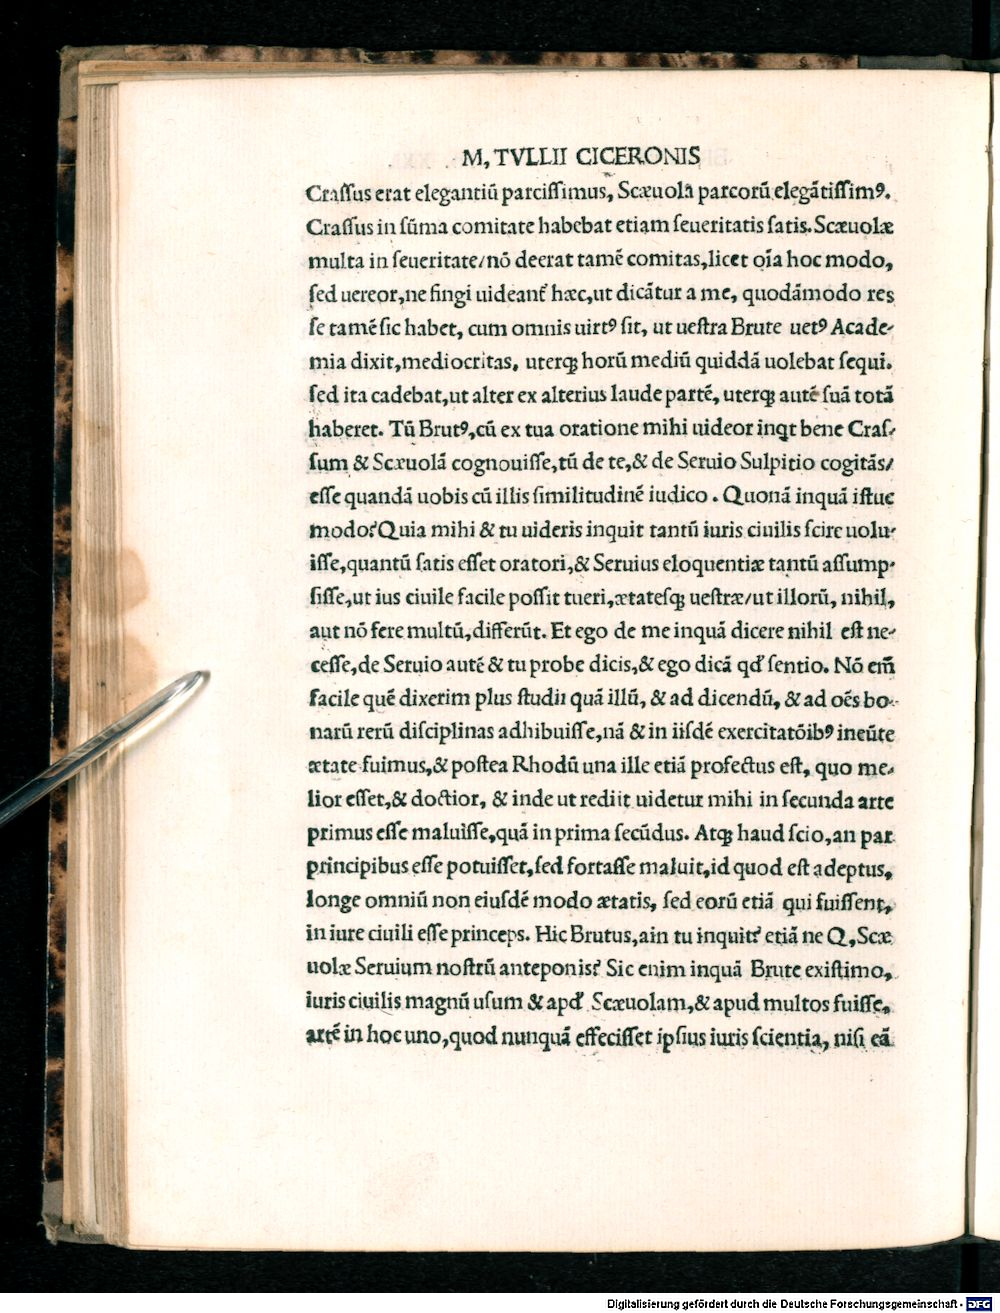 M, TVLLII CICERONIS
Craſſus erat elegantiū parciſſimus, Scæuola parcorū elegātiſſimꝰ.
Craſſus in ſūma comitate habebat etiam ſeueritatis ſatis. Scæuolæ
multa in ſeueritate/nō deerat tamē comitas,licet oīa hoc modo,
ſed uereor,ne fingi uideant̃ hæc,ut dicātur a me, quodāmodo res
ſe tamē ſic habet, cum omnis uirtꝰ ſit, ut ueſtra Brute uetꝰ Acade-
mia dixit,mediocritas, uterqꝫ horū mediū quiddā uolebat ſequi.
ſed ita cadebat,ut alter ex alterius laude partē, uterqꝫ autē ſuā totā
haberet. Tū Brutꝰ,cū ex tua oratione mihi uideor inqt bene Craſ-
ſum & Scæuolā cognouiſſe,tū de te,& de Seruio Sulpitio cogitās/
eſſe quandā uobis cū illis ſimilitudinē iudico. Quonā inquā iſtuc
modo? Quia mihi & tu uideris inquit tantū iuris ciuilis ſcire uolu-
iſſe,quantū ſatis eſſet oratori,& Seruius eloquentiæ tantū aſſump-
ſiſſe,ut ius ciuile facile poſſit tueri,ætateſqꝫ ueſtræ/ut illorū, nihil,
aut nō fere multū,differūt. Et ego de me inquā dicere nihil eſt ne-
ceſſe,de Seruio autē & tu probe dicis,& ego dicā qd' ſentio. Nō em̄
facile quē dixerim plus ſtudii quā illū, & ad dicendū, & ad oēs bo-
narū rerū diſciplinas adhibuiſſe,nā & in iiſdē exercitatōibꝰ ineūte
ætate fuimus,& poſtea Rhodū una ille etiā profectus eſt, quo me-
lior eſſet,& doctior, & inde ut rediit uidetur mihi in ſecunda arte
primus eſſe maluiſſe,quā in prima ſecūdus. Atqꝫ haud ſcio,an par
principibus eſſe potuiſſet,ſed fortaſſe maluit,id quod eſt adeptus,
longe omniū non eiuſdē modo ætatis, ſed eorū etiā qui fuiſſent,
in iure ciuili eſſe princeps. Hic Brutus,ain tu inquit? etiā ne Q, Scæ
uolæ Seruium noſtrū anteponis? Sic enim inquā Brute exiſtimo,
iuris ciuilis magnū uſum & apd' Scæuolam,& apud multos fuiſſe,
artē in hoc uno,quod nunquā effeciſſet ipſius iuris ſcientia, niſi eā
Digitalisierung gefördert durch die Deutsche Forschungsgemeinschaft - DFG